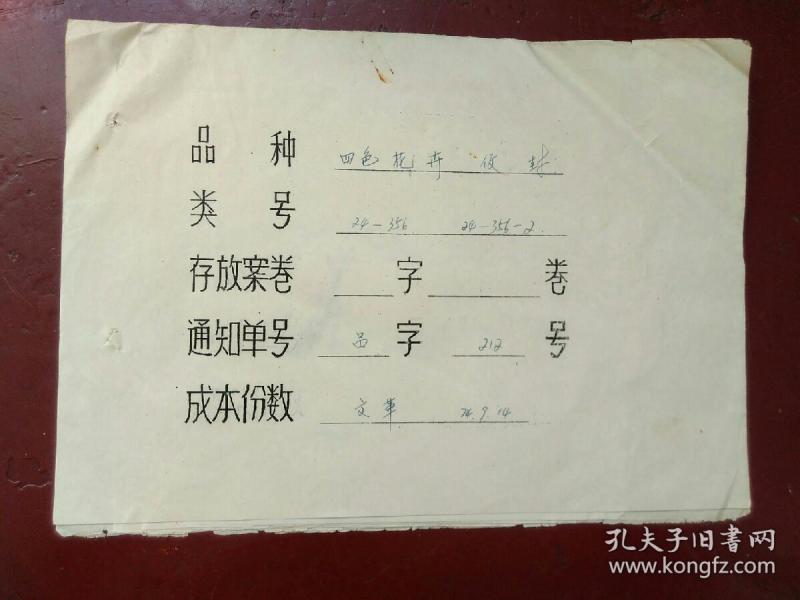 品种 四色花卉 仪封
类号 24-356 24-356-2
存放案卷 字 卷
通知单号 品字 212 号
成本份数 文革 74.9.14
孔夫子旧书网
www.kongfz.com